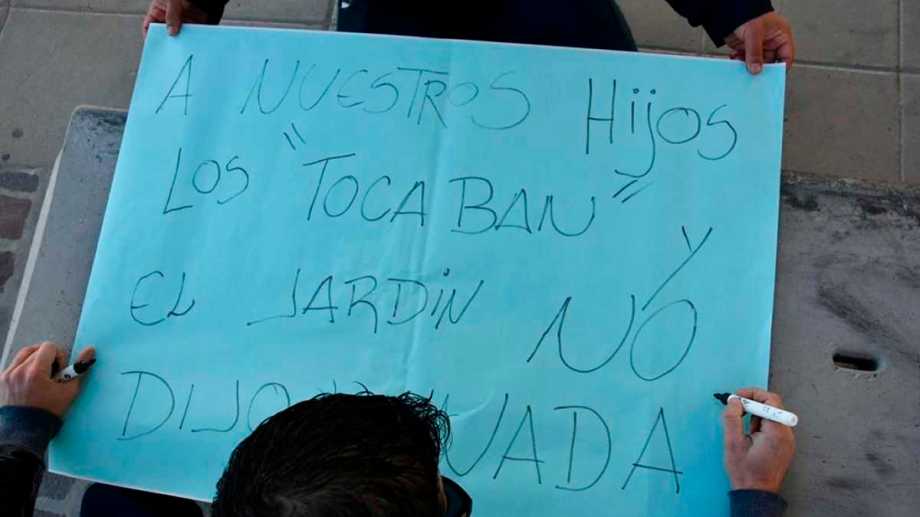 A NUESTROS HijOS
LOS "TOCABAN"
EL JARDIN Y NO
DIJO NADA